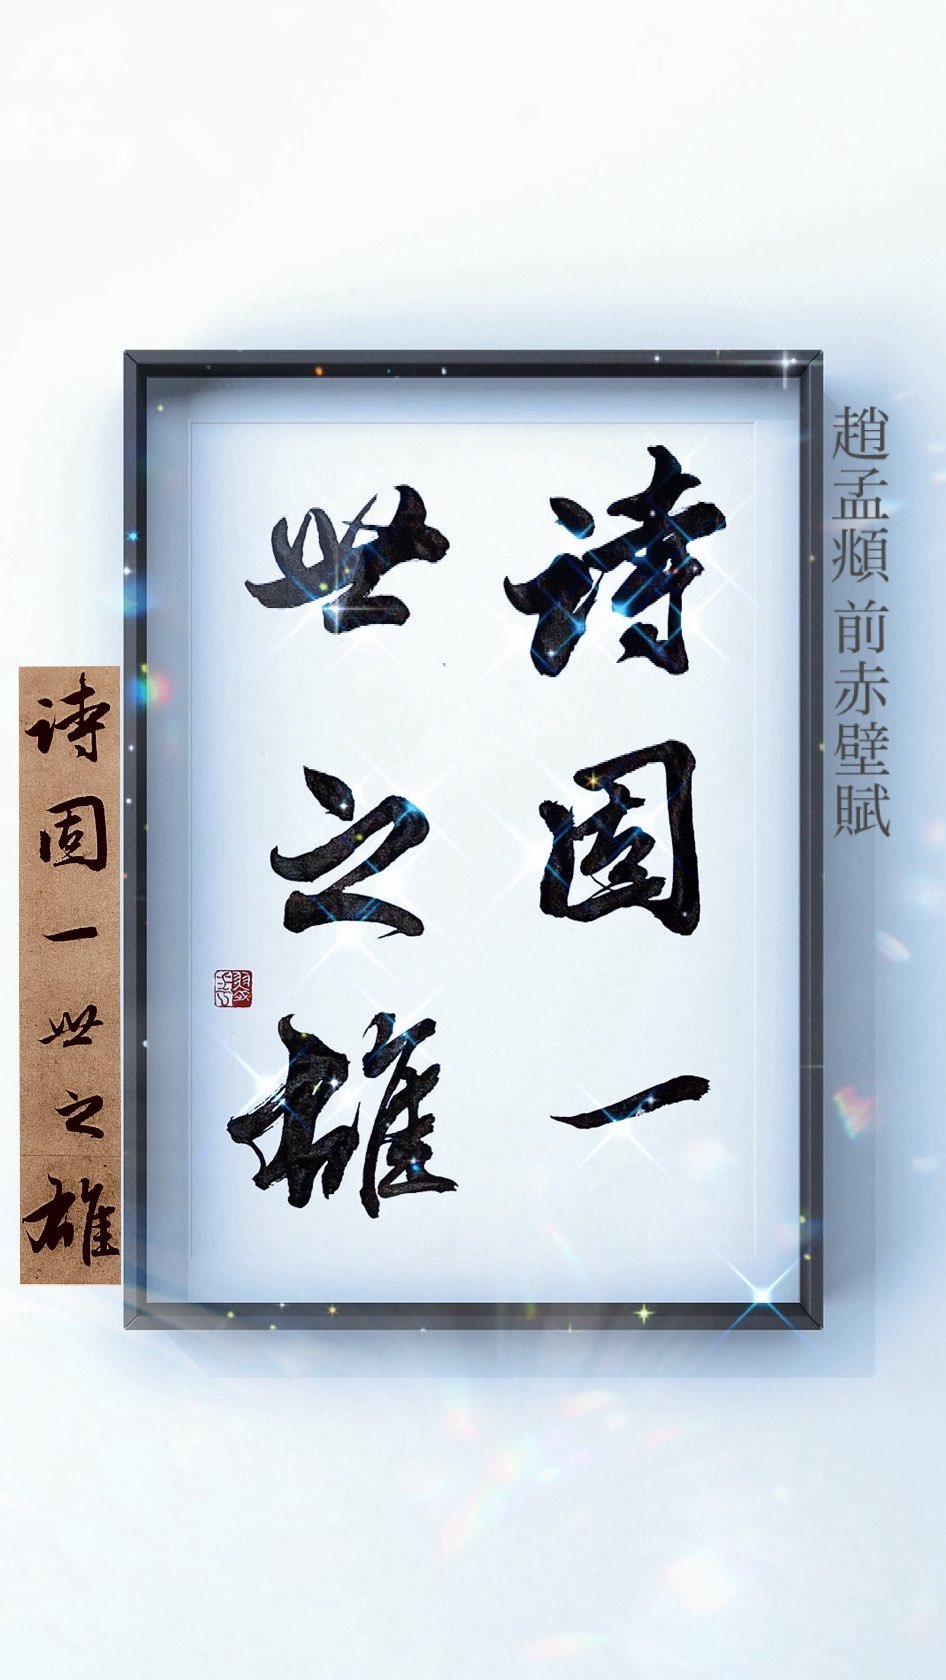 趙孟頫 前赤壁賦
詩固一
世之雄
詩固一世之雄